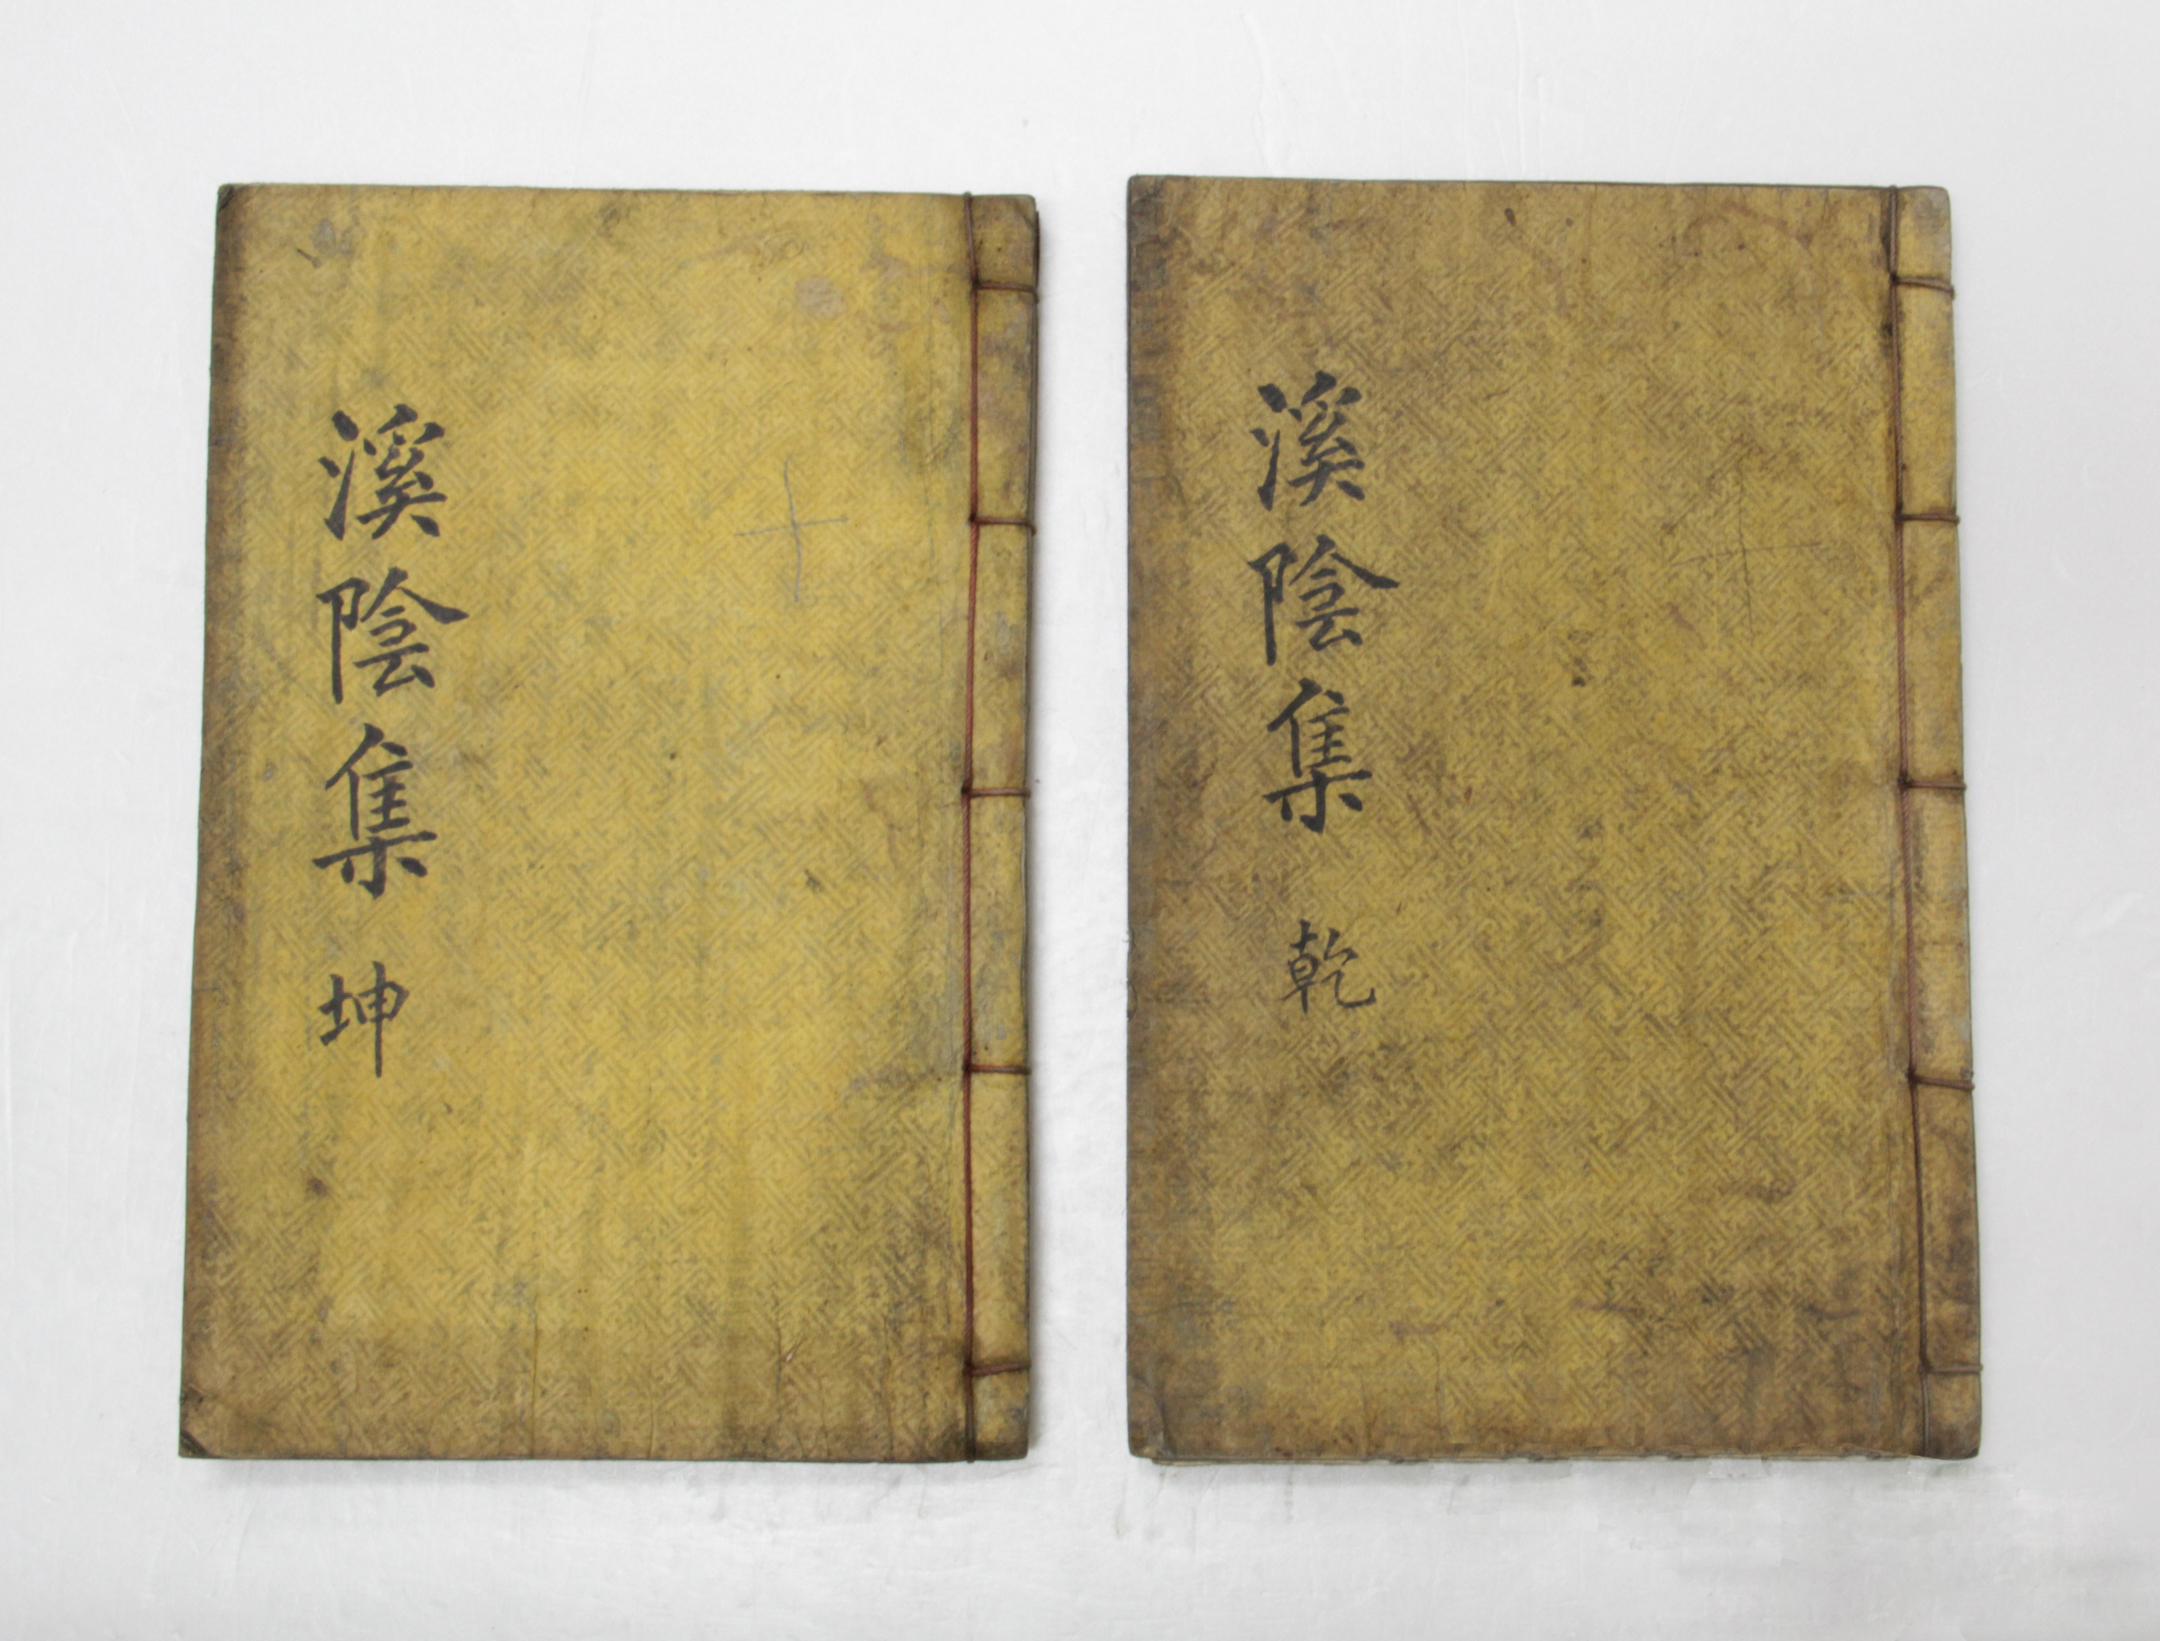 溪陰集 乾
溪陰集 坤